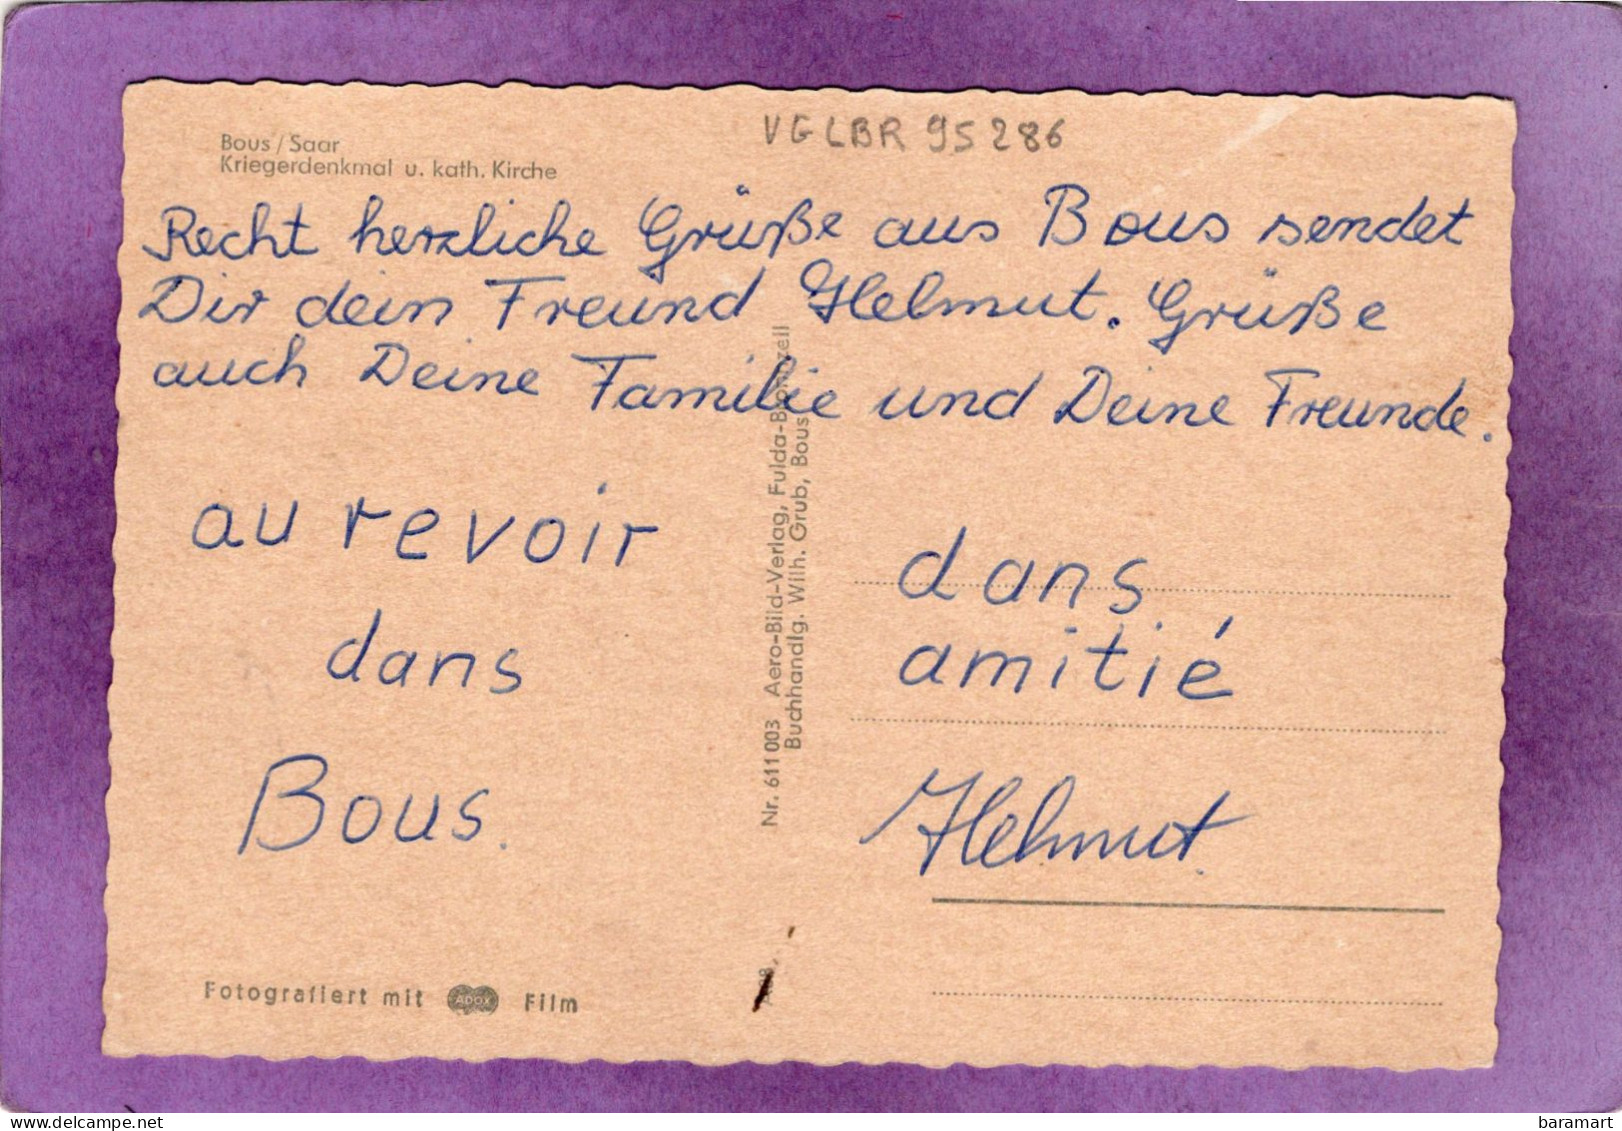 VGLBR 95286
Bous / Saar
Kriegerdenkmal u. kath. Kirche
Recht herzliche Grüße aus Bous sendet
Dir dein Freund Helmut. Grüße
auch Deine Familie und Deine Freunde.
au revoir
dans
Bous.
dans
amitié
Helmut.
Nr. 611 003 Aero-Bild-Verlag, Fulda-Bronnzell
Buchhandlg. Wilh. Grub, Bous
Fotografiert mit ADOX Film
baramart